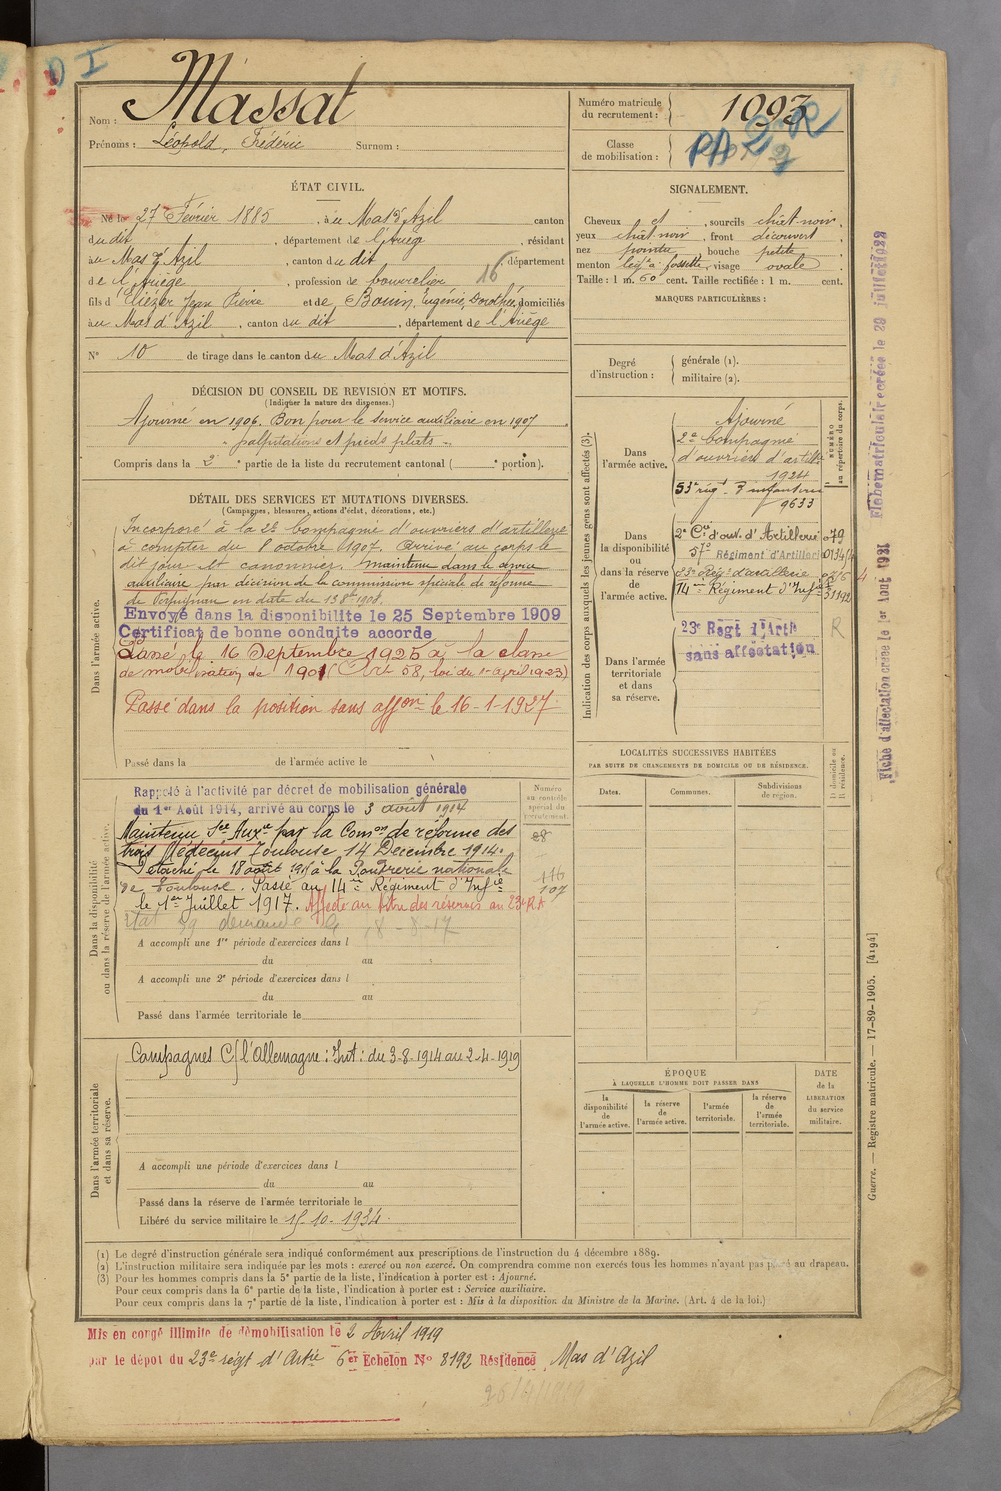 Nom : Massat
Prénoms : Léopold, Frédéric Surnom :
Numéro matricule du recrutement : 1093
Classe de mobilisation :
PA 2 R
ÉTAT CIVIL.
Né le 27 Février 1885, à u Mas d'Azil canton
du dit, département de l'Ariège, résidant
à u Mas d'Azil, canton du dit département
de l'Ariège, profession de bourrelier 16
fils d'Eliezer Jean Pierre et de Bouin, Eugénie, Dorothée, domiciliés
à u Mas d'Azil, canton du dit, département de l'Ariège
N° 10 de tirage dans le canton du Mas d'Azil
DÉCISION DU CONSEIL DE REVISION ET MOTIFS.
(Indiquer la nature des dispenses.)
Ajourné en 1906. Bon pour le service auxiliaire en 1907
palpitations et pieds plats
Compris dans la 2e partie de la liste du recrutement cantonal ( e portion).
DÉTAIL DES SERVICES ET MUTATIONS DIVERSES.
(Campagnes, blessures, actions d'éclat, décorations, etc.)
Dans l'armée active.
Incorporé à la 2e Compagnie d'ouvriers d'artillerie
à compter du 8 octobre 1907. Arrivé au corps le
dit jour et canonnier. Maintenu dans le service
auxiliaire par décision de la commission spéciale de réforme
de Perpignan en date du 13 8bre 1908.
Envoyé dans la disponibilite le 25 Septembre 1909
Certificat de bonne conduite accorde
Passé le 16 Septembre 1925 à la classe
de mobilisation de 1901 (Art 58, loi du 1er avril 1923)
Passé dans la position sans affon le 16-1-1927
Passé dans la de l'armée active le
Dans la disponibilité ou dans la réserve de l'armée active.
Numéro au contrôle spécial du recrutement.
Rappelé à l'activité par décret de mobilisation générale
du 1er Août 1914, arrivé au corps le 3 août 1914
Maintenu Sce Auxre par la Comon de réforme des
trois Médecins Toulouse 14 Décembre 1914.
Détaché le 18 août 1915 à la Poudrerie nationale
de Toulouse. Passé au 14me Régiment d'Infie
le 1er Juillet 1917. Affecté au titre des réserves au 23e RA
88
116
107
Etat 39 demande 18-8-17
A accompli une 1re période d'exercices dans l
du au
A accompli une 2e période d'exercices dans l
du au
Passé dans l'armée territoriale le
Dans l'armée territoriale et dans sa réserve.
Campagnes C/ l'Allemagne : Int : du 3-8-1914 au 2-4-1919
A accompli une période d'exercices dans l
du au
Passé dans la réserve de l'armée territoriale le
Libéré du service militaire le 15-10-1934
SIGNALEMENT.
Cheveux et, sourcils chât-noir,
yeux chât-noir, front découvert,
nez pointu, bouche petite,
menton à fossette, visage ovale,
Taille : 1 m. 60 cent. Taille rectifiée : 1 m. cent.
MARQUES PARTICULIÈRES :
Degré d'instruction : générale (1).
militaire (2).
Indication des corps auxquels les jeunes gens sont affectés (3).
NUMÉRO au répertoire du corps.
Dans l'armée active.
Ajourné
2e Compagnie
d'ouvriers d'artillie
1924
53e régt d'infanterie
9633
Dans la disponibilité ou dans la réserve de l'armée active.
2e Cie d'ouv. d'Artillerie 079
57e Régiment d'Artillerie
53e Régt d'artillerie
14me Régiment d'Infie
Dans l'armée territoriale et dans sa réserve.
23e Regt d'Artie R
sans affectation
LOCALITÉS SUCCESSIVES HABITÉES
PAR SUITE DE CHANGEMENTS DE DOMICILE OU DE RÉSIDENCE.
Dates. Communes. Subdivisions de région. D domicile ou R résidence.
ÉPOQUE
À LAQUELLE L'HOMME DOIT PASSER DANS
la disponibilité de l'armée active. la réserve de l'armée active. l'armée territoriale. la réserve de l'armée territoriale.
DATE de la LIBÉRATION du service militaire.
(1) Le degré d'instruction générale sera indiqué conformément aux prescriptions de l'instruction du 4 décembre 1889.
(2) L'instruction militaire sera indiquée par les mots : exercé ou non exercé. On comprendra comme non exercés tous les hommes n'ayant pas passé au drapeau.
(3) Pour les hommes compris dans la 5e partie de la liste, l'indication à porter est : Ajourné.
Pour ceux compris dans la 6e partie de la liste, l'indication à porter est : Service auxiliaire.
Pour ceux compris dans la 7e partie de la liste, l'indication à porter est : Mis à la disposition du Ministre de la Marine. (Art. 4 de la loi.)
Mis en congé illimité de démobilisation le 2 Avril 1919
par le dépot du 23e régt d'Artie 6er Echelon N° 8192 Résidence Mas d'Azil
Fiche matriculaire créée le 29 juillet 1929
Fiche d'affectation créée le 1er Août 1931
Guerre. — Registre matricule. — 17-89-1905. [4194]